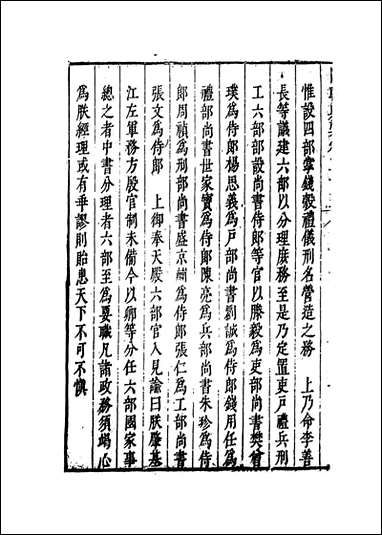 惟設四部掌錢穀禮儀刑名營造之務　上乃命李善
長等議建六部以分理庶務至是乃定置吏戶禮兵刑
工六部部設尚書侍郎等官以滕毅為吏部尚書樊魯
璞為侍郎楊思義為戶部尚書劉誠為侍郎錢用任為
禮部尚書世家寶為侍郎陳亮為兵部尚書朱珍為侍
郎周禎為刑部尚書盛京為侍郎張仁為工部尚書
張文為侍郎　上御奉天殿六部官入見諭曰朕肇基
江左軍務方殷官制未備今以卿等分任六部國家事
總之者中書分理者六部至為要職凡諸政務須竭心
為朕經理或有乖謬則貽患天下不可不慎